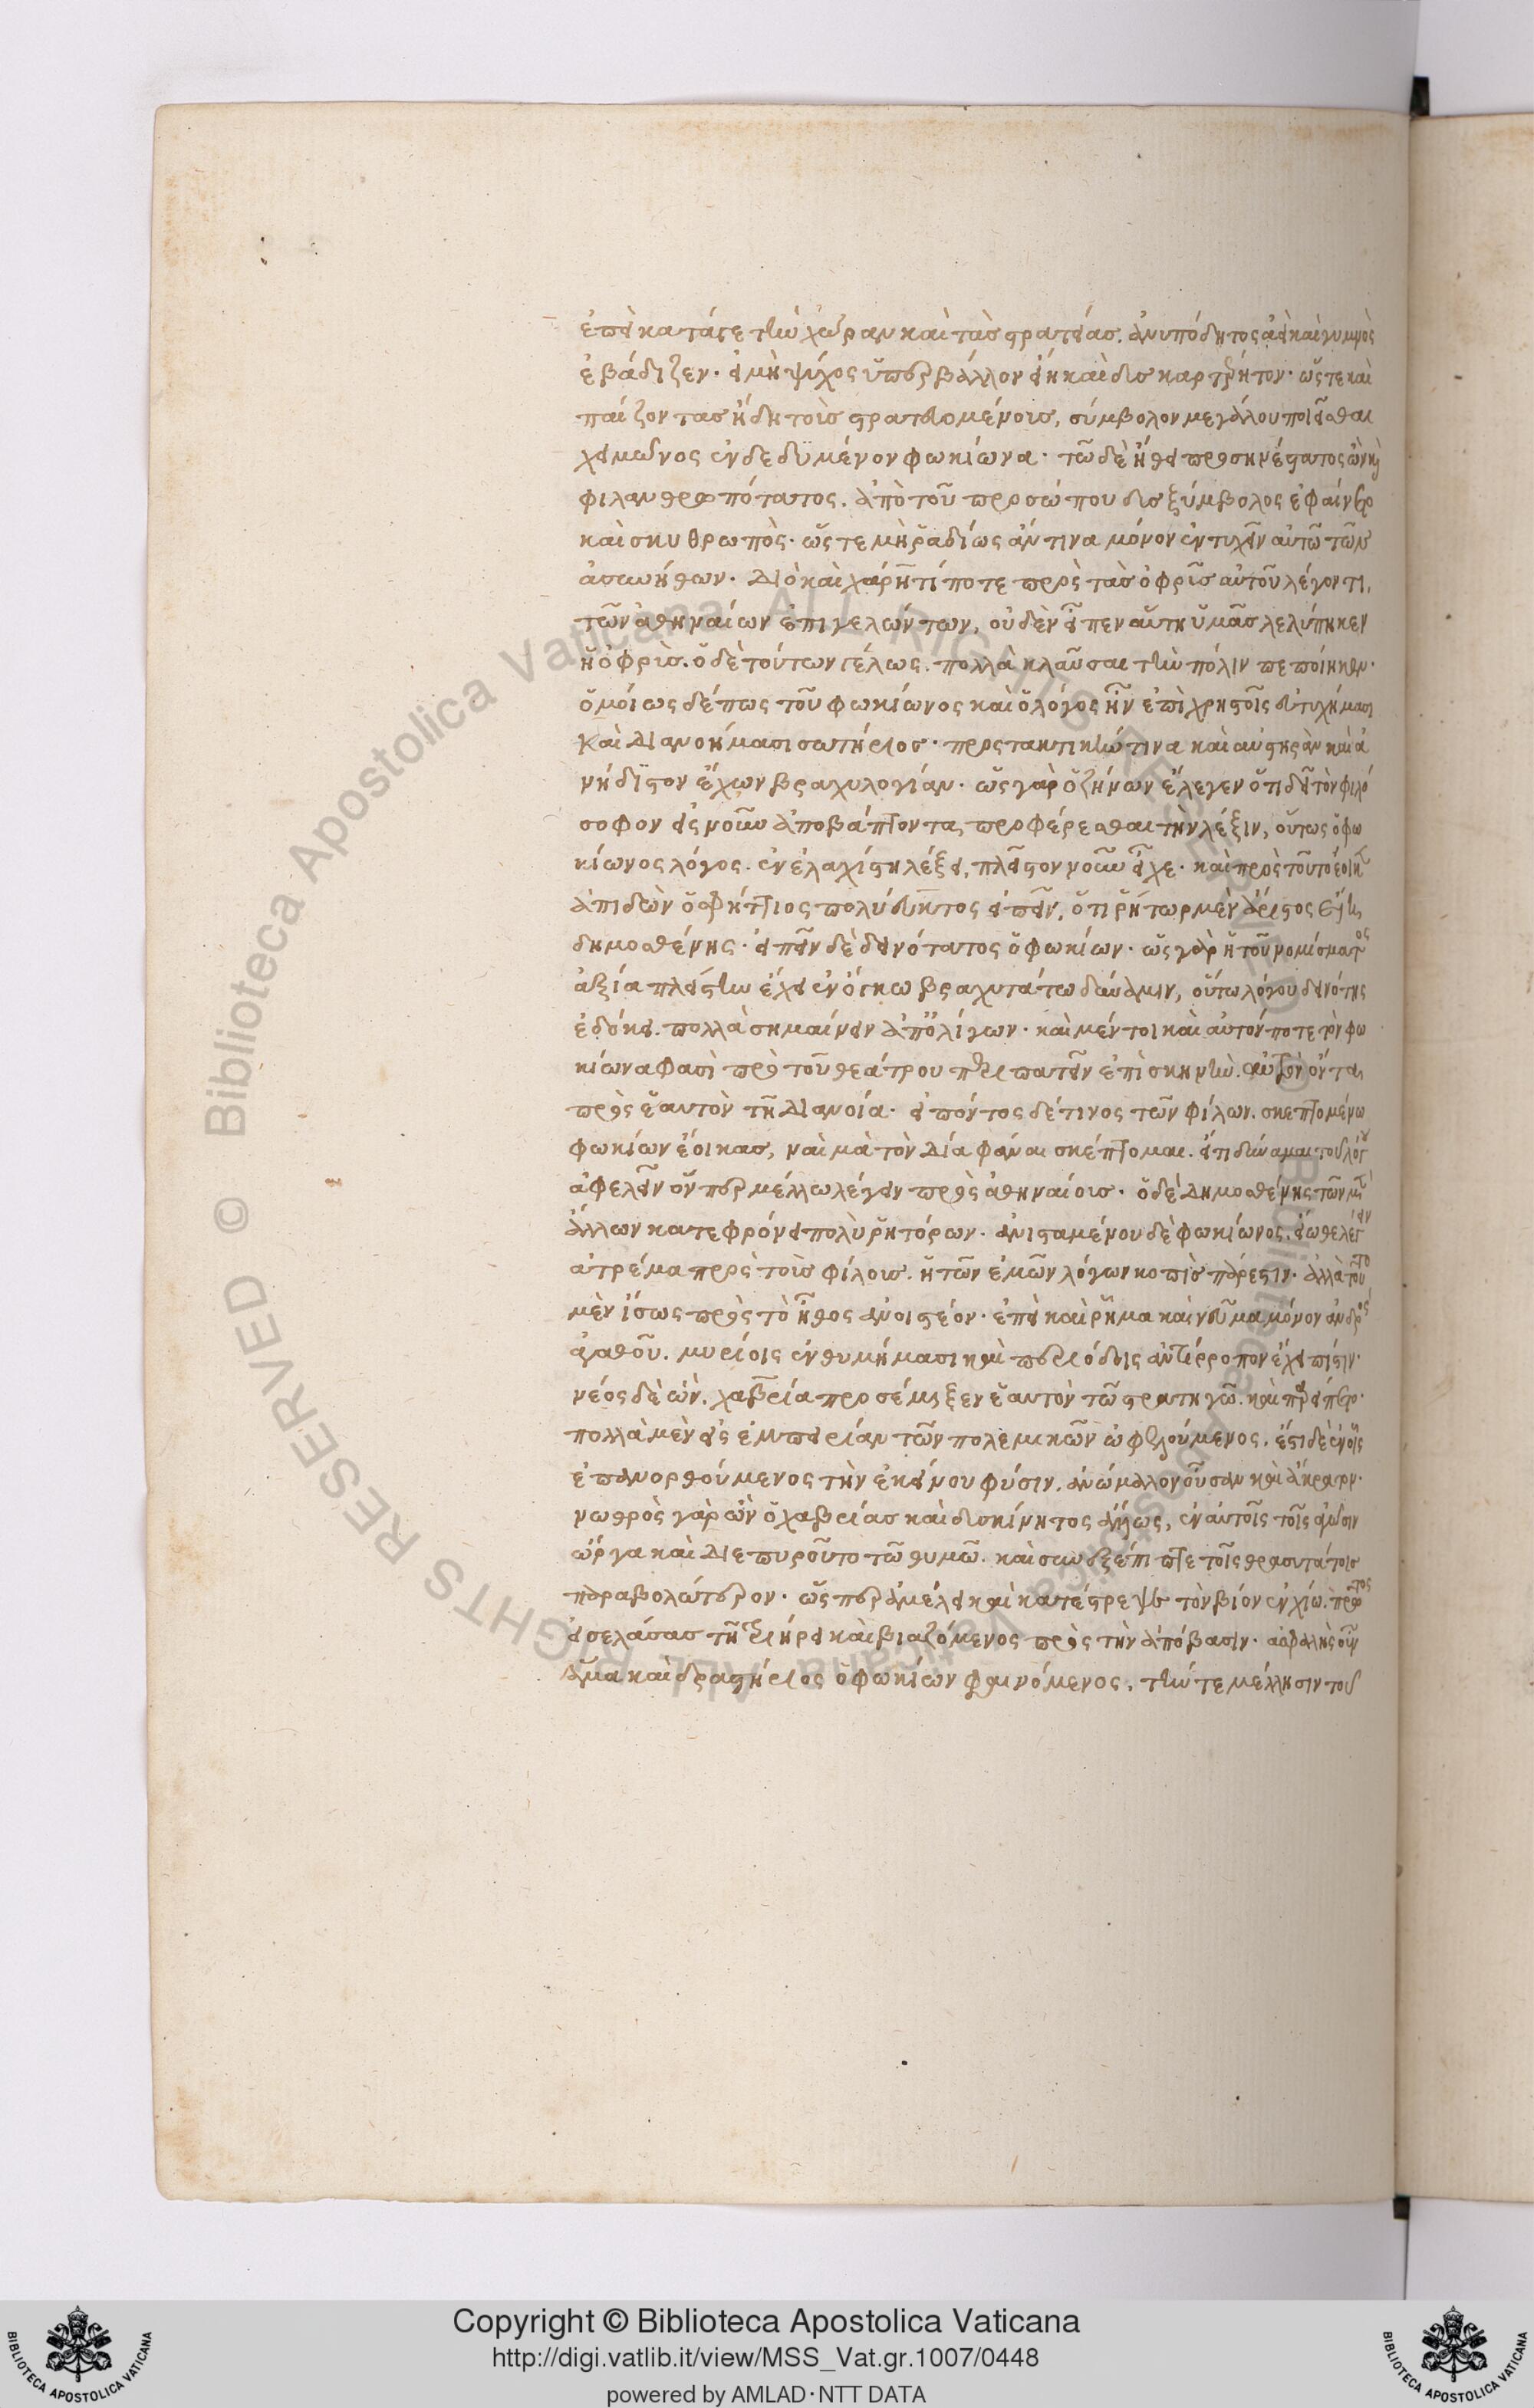 ἐπεὶ κατάγε τὴν χώραν καὶ τὰσ στρατείασ. ἀνυπόδητος ἀεὶ καὶ γυμνὸς
ἐβάδιζεν· εἰ μὴ ψύχος ὑπερβάλλον εἴη καὶ δυσκαρτέρητον· ὥστε καὶ
παίζοντασ ἤδη τοὺσ στρατευομένουσ, σύμβολον μεγάλου ποιεῖσθαι
χειμῶνος ἐνδεδυμένον φωκίωνα· τῶ δὲ ἤθει προσηνέστατος ὢν καὶ
φιλανθρωπότατος. ἀπὸ τοῦ προσώπου δυσξύμβολος ἐφαίνετο
καὶ σκυθρωπὸς· ὥστε μὴ ῥαδίως ἄν τινα μόνον ἐντυχεῖν αὐτῶ τῶν
ἀσυνήθων· Διὸ καὶ χάρητί ποτε πρὸς τὰσ ὀφρῦσ αὐτοῦ λέγοντι,
τῶν ἀθηναίων ἐπιγελώντων, οὐδὲν εἶπεν αὕτη ὑμᾶσ λελύπηκεν
ἡ ὀφρὺσ. ὁ δὲ τούτων γέλως. πολλὰ κλαῦσαι τὴν πόλιν πεποίηκεν·
ὁμοίως δέ πως τοῦ φωκίωνος καὶ ὁ λόγος ἦν ἐπὶ χρηστοῖς εὐτυχήμασι
καὶ Διανοήμασι σωτήριοσ· προστακτικήν τινα καὶ αὐστηρὰν καὶ ἀ
νήδυστον ἔχων βραχυλογίαν· ὡς γὰρ ὁ ζήνων ἔλεγεν ὅτι δεῖ τὸν φιλό
σοφον εἰς νοῦν ἀποβάπτοντα, προφέρεσθαι τὴν λέξιν, οὕτως ὁ φω
κίωνος λόγος. ἐν ἐλαχίστη λέξει, πλεῖστον νοῦν εἶχε· καὶ πρὸς τοῦτο ἔοικεν
ἀπιδεὼν ὁ σφήττιος πολύευκτος εἰπεῖν, ὅτι ῥήτωρ μὲν ἄριστος εἴη
δημοσθένης· εἰπεῖν δὲ δεινότατος ὁ φωκίων· ὡς γὰρ ἡ τοῦ νομίσματος
ἀξία πλείστην ἔχει ἐν ὄγκω βραχυτάτω δύναμιν, οὕτω λόγου δεινότης
ἐδόκει. πολλὰ σημαίνειν ἀπὸ ὀλίγων· καὶ μέντοι καὶ αὐτόν ποτε τὸν φω
κίωνα φασὶ πρὸ τοῦ θεάτρου περιπατεῖν ἐπὶ σκηνὴν. αὐτὸν ὄντα,
πρὸς ἑαυτὸν τῆ Διανοία· εἰπόντος δέ τινος τῶν φίλων. σκεπτομένω
φωκίων ἔοικασ, ναὶ μὰ τὸν Δία φάναι σκέπτομαι. εἴ τι δύναμαι τοῦ λόγου
ἀφελεῖν ὃν περ μέλλω λέγειν πρὸς ἀθηναίουσ· ὁ δὲ Δημοσθένης τῶν μὲν
ἄλλων κατεφρόνει πολὺ ῥητόρων· ἀνισταμένου δὲ φωκίωνος. εἴωθε λέγειν
ἀτρέμα πρὸς τοὺσ φίλουσ. ἡ τῶν ἐμῶν λόγων κοπὶσ πάρεστιν· ἀλλὰ τοῦτο
μὲν ἴσως πρὸς τὸ ἦθος ἀνοιστέον· ἐπεὶ καὶ ῥῆμα καὶ νεῦμα μόνον ἀνδρὸς
ἀγαθοῦ. μυρίοις ἐνθυμήμασι καὶ περιόδοις ἀντίρροπον ἔχει πίστιν·
νέος δὲ ὢν. χαβρία προσέμιξεν ἑαυτὸν τῶ στρατηγῶ. καὶ παρείπετο·
πολλὰ μὲν εἰς ἐμπειρίαν τῶν πολεμικῶν ὠφελούμενος. ἔστι δὲ ἐν οἷς
ἐπανορθούμενος τὴν ἐκείνου φύσιν. ἀνώμαλον οὖσαν καὶ ἄκρατον·
νωθρὸς γὰρ ὢν ὁ χαβρίασ καὶ δυσκίνητος ἄλλως, ἐν αὐτοῖς τοῖς ἀγῶσιν
ὤργα καὶ Διεπυροῦτο τῶ θυμῶ. καὶ συνεξέπιπτε τοῖς θρασυτάτοισ
παραβολώτερον· ὥσπερ ἀμέλει καὶ κατέστρεψε τὸν βίον ἐν χίω. πρῶτος
εἰσελάσασ τῆ τριήρει καὶ βιαζόμενος πρὸς τὴν ἀπόβασιν· ἀσφαλὴς οὖν
ἅμα καὶ δραστήριος ὁ φωκίων φαινόμενος. τήν τε μέλλησιν τοῦ
Biblioteca Apostolica Vaticana ALL RIGHTS RESERVED ©
Copyright © Biblioteca Apostolica Vaticana
http://digi.vatlib.it/view/MSS_Vat.gr.1007/0448
powered by AMLAD·NTT DATA
BIBLIOTECA APOSTOLICA VATICANA
BIBLIOTECA APOSTOLICA VATICANA